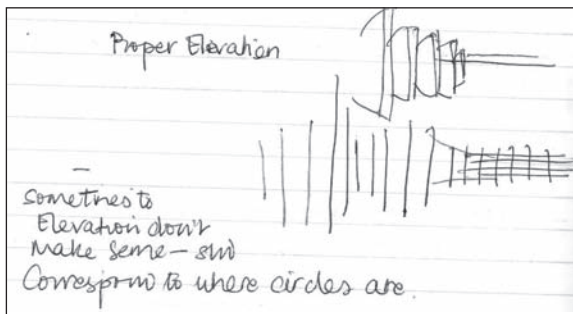 Proper Elevation
sometimes to
Elevation don't
Make sense –
Correspond to where circles are.